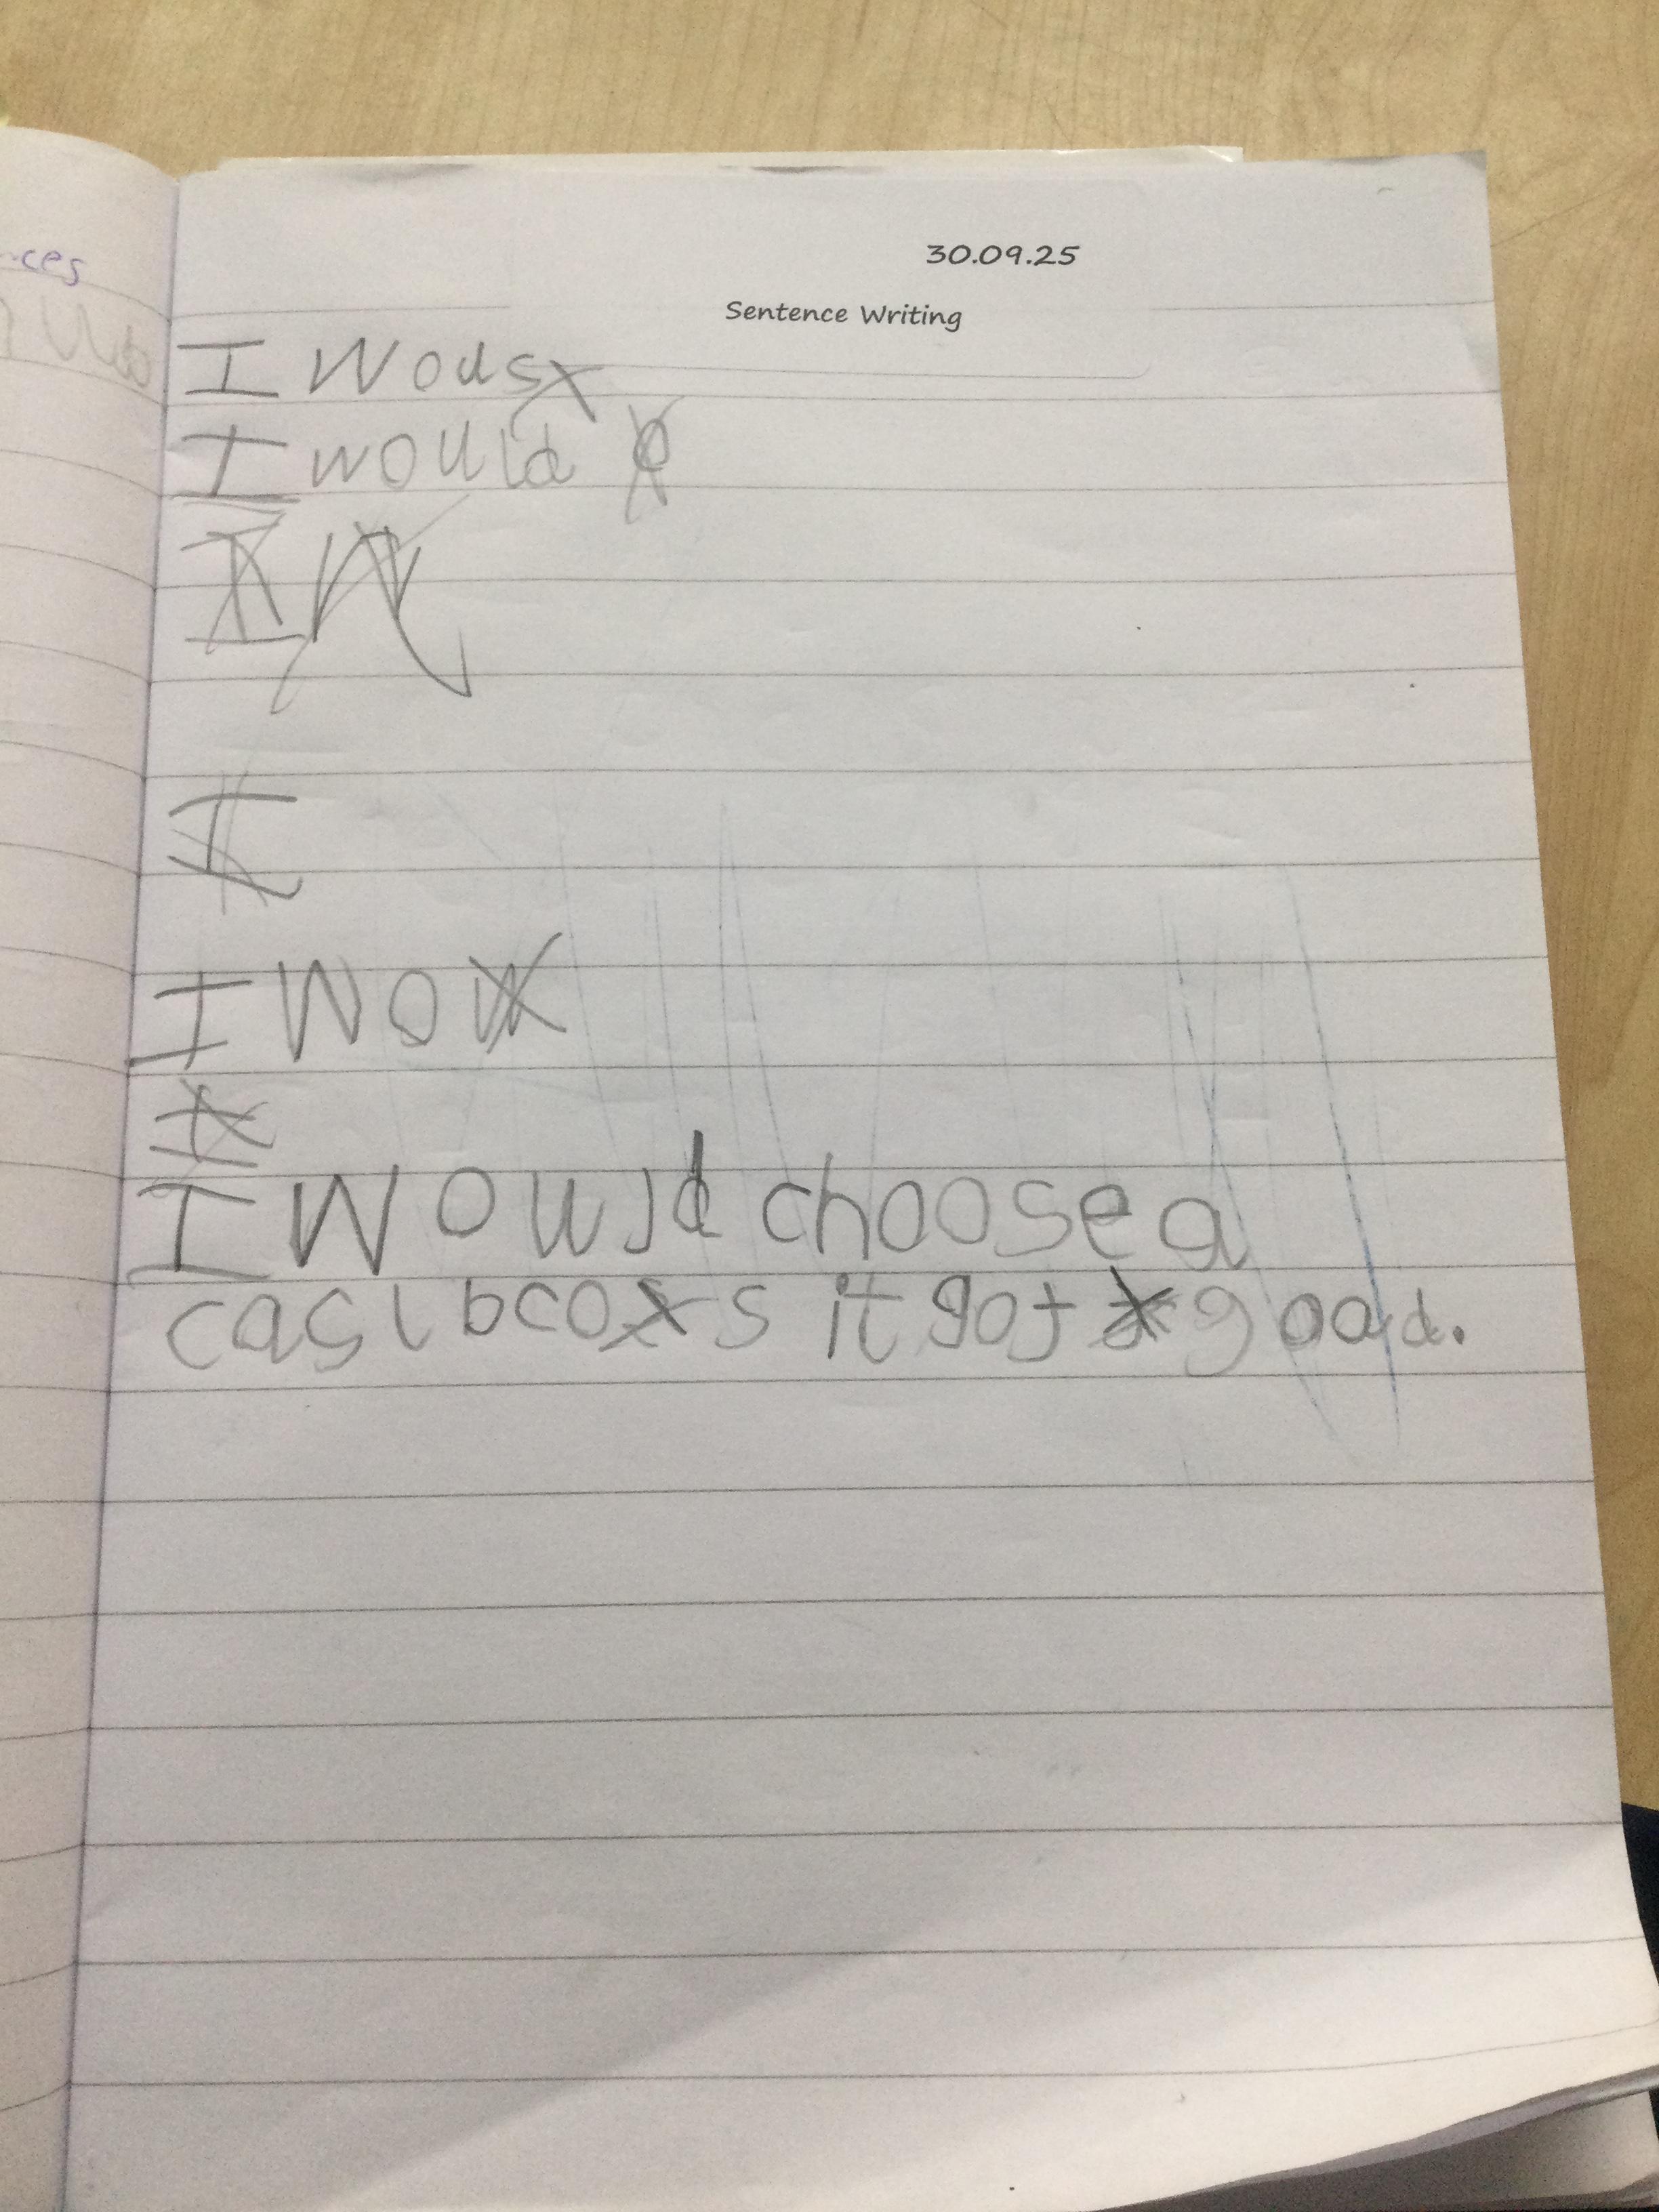 ces
30.09.25
Sentence Writing
I Wous
I would
I
I
I Wo
I
I Would choose a
casl bcos it got good.